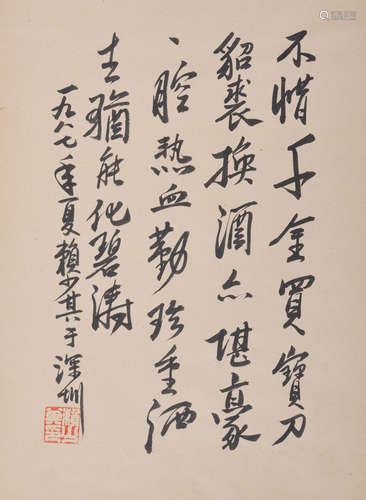 不惜千金買寶刀
貂裘換酒亦堪豪
一腔熱血勤珍重洒
去猶能化碧濤
一九八七年夏賴少其于深圳